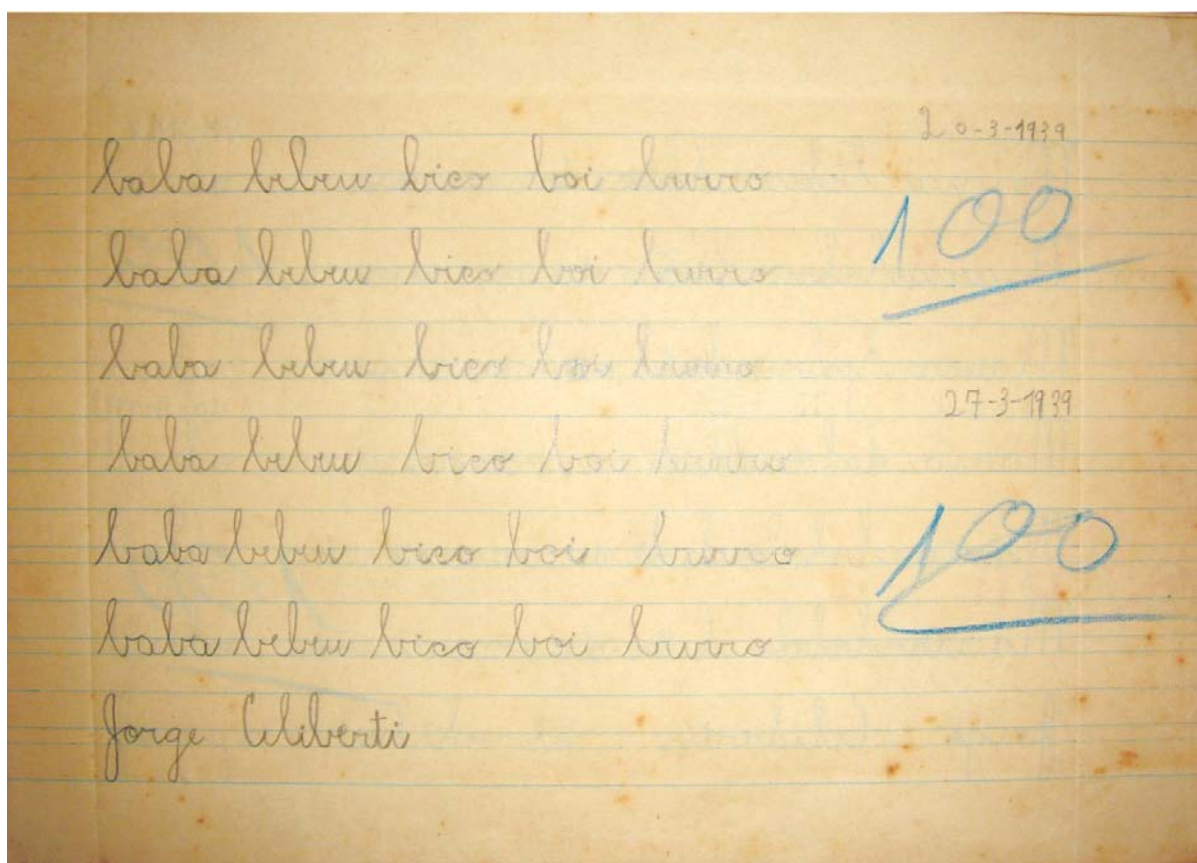 20-3-1939
baba bebeu bico boi burro
100
baba bebeu bico boi burro
baba bebeu bico boi burro
27-3-1939
baba bebeu bico boi burro
baba bebeu bico boi burro
100
baba bebeu bico boi burro
Jorge Ciliberti